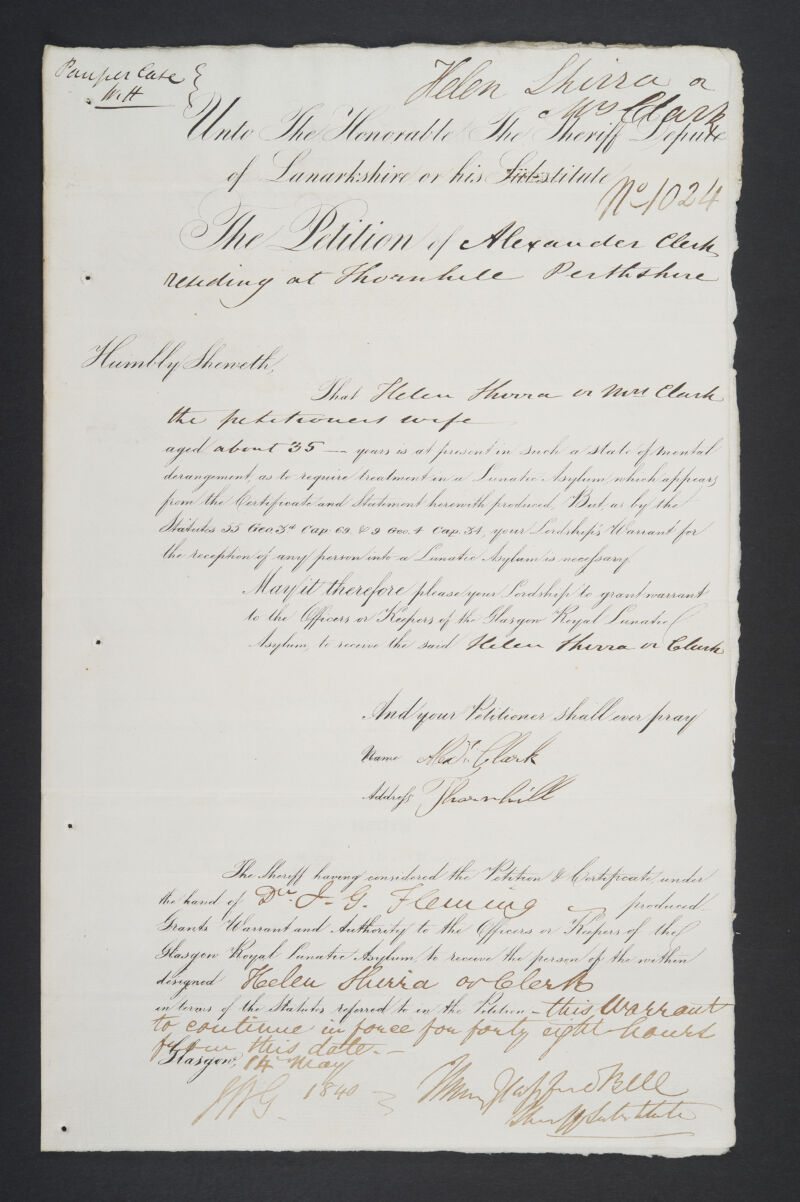 Pauper Case
W.H
Helen Shirra or
Mrs Clark
Unto The Honorable The Sheriff Depute
of Lanarkshire or his Substitute
No 1024
The Petition of Alexander Clerk
residing at Thornhill Perthshire
Humbly Sheweth,
That Helen Shirra or Mrs Clark
the petitioners wife
aged about 35 — years is at present in such a state of mental
derangement, as to require treatment in a Lunatic Asylum which appears
from the Certificate and Statement herewith produced, But, as by the
Statutes 55 Geo. 3d Cap. 69. & 9 Geo. 4 Cap. 34, your Lordship's Warrant for
the reception of any person into a Lunatic Asylum is necessary
May it therefore please your Lordship to grant warrant
to the Officers or Keepers of the Glasgow Royal Lunatic
Asylum, to receive the said Helen Shirra or Clark
And your Petitioner shall ever pray
Name Alexr. Clark
Address Thornhill
The Sheriff having considered the Petition & Certificate, under
the hand of Dr. J. G. Fleming produced
Grants Warrant and Authority to the Officers or Keepers of the
Glasgow Royal Lunatic Asylum, to receive the person of the within
designed Helen Shirra or Clerk
in terms of the Statutes referred to in the Petition – this Warrant
to continue in force for forty eight hours
from this date. –
Glasgow, 14 May
1840
Henry Glassford Bell
Sheriff Substitute